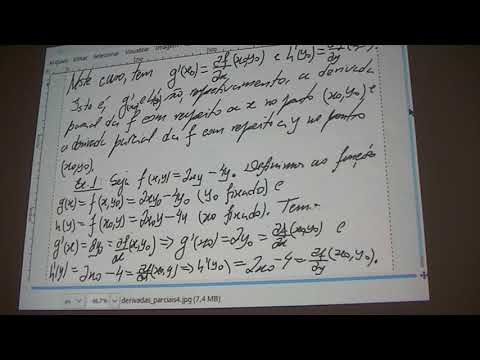 Arquivo Editar Selecionar Visualizar Imagem
Neste caso, tem g'(x₀) = ∂f/∂x (x₀,y₀) e h'(y₀) = ∂f/∂y (x₀,y₀).
Isto é, g'(x₀) e h'(y₀) são, respectivamente, a derivada
parcial da f com respeito a x no ponto (x₀,y₀) e
a derivada parcial da f com respeito a y no ponto
(x₀,y₀).
Ex.1: Seja f(x,y) = 2xy − 4y. Definimos as funções
g(x) = f(x,y₀) = 2xy₀ − 4y₀ (y₀ fixado) e
h(y) = f(x₀,y) = 2x₀y − 4y (x₀ fixado). Temos
g'(x) = 2y₀ = ∂f/∂x (x,y₀) ⇒ g'(x₀) = 2y₀ = ∂f/∂x (x₀,y₀) e
h'(y) = 2x₀ − 4 = ∂f/∂y (x₀,y) ⇒ h'(y₀) = 2x₀ − 4 = ∂f/∂y (x₀,y₀).
px 66,7% derivadas_parciais4.jpg (7,4 MB)